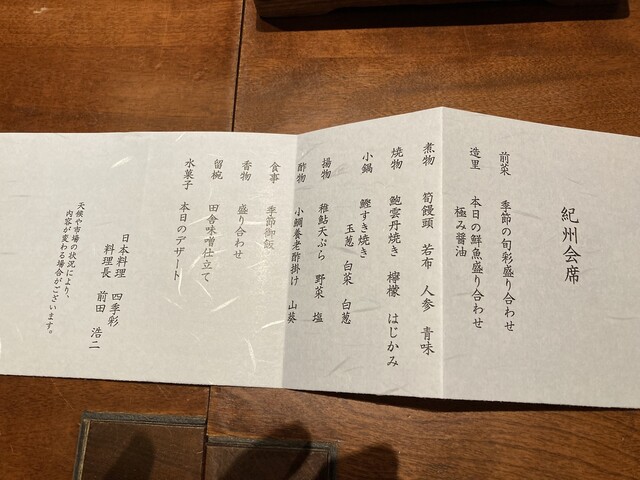 紀州会席
前菜　季節の旬彩盛り合わせ
造里　本日の鮮魚盛り合わせ
極み醤油
煮物　筍饅頭　若布　人参　青味
焼物　鮑雲丹焼き　檸檬　はじかみ
小鍋　鰹すき焼き
玉葱　白菜　白葱
揚物　稚鮎天ぷら　野菜　塩
酢物　小鯛養老酢掛け　山葵
食事　季節御飯
香物　盛り合わせ
留椀　田舎味噌仕立て
水菓子　本日のデザート
日本料理　四季彩
料理長　前田　浩二
天候や市場の状況により、
内容が変わる場合がございます。